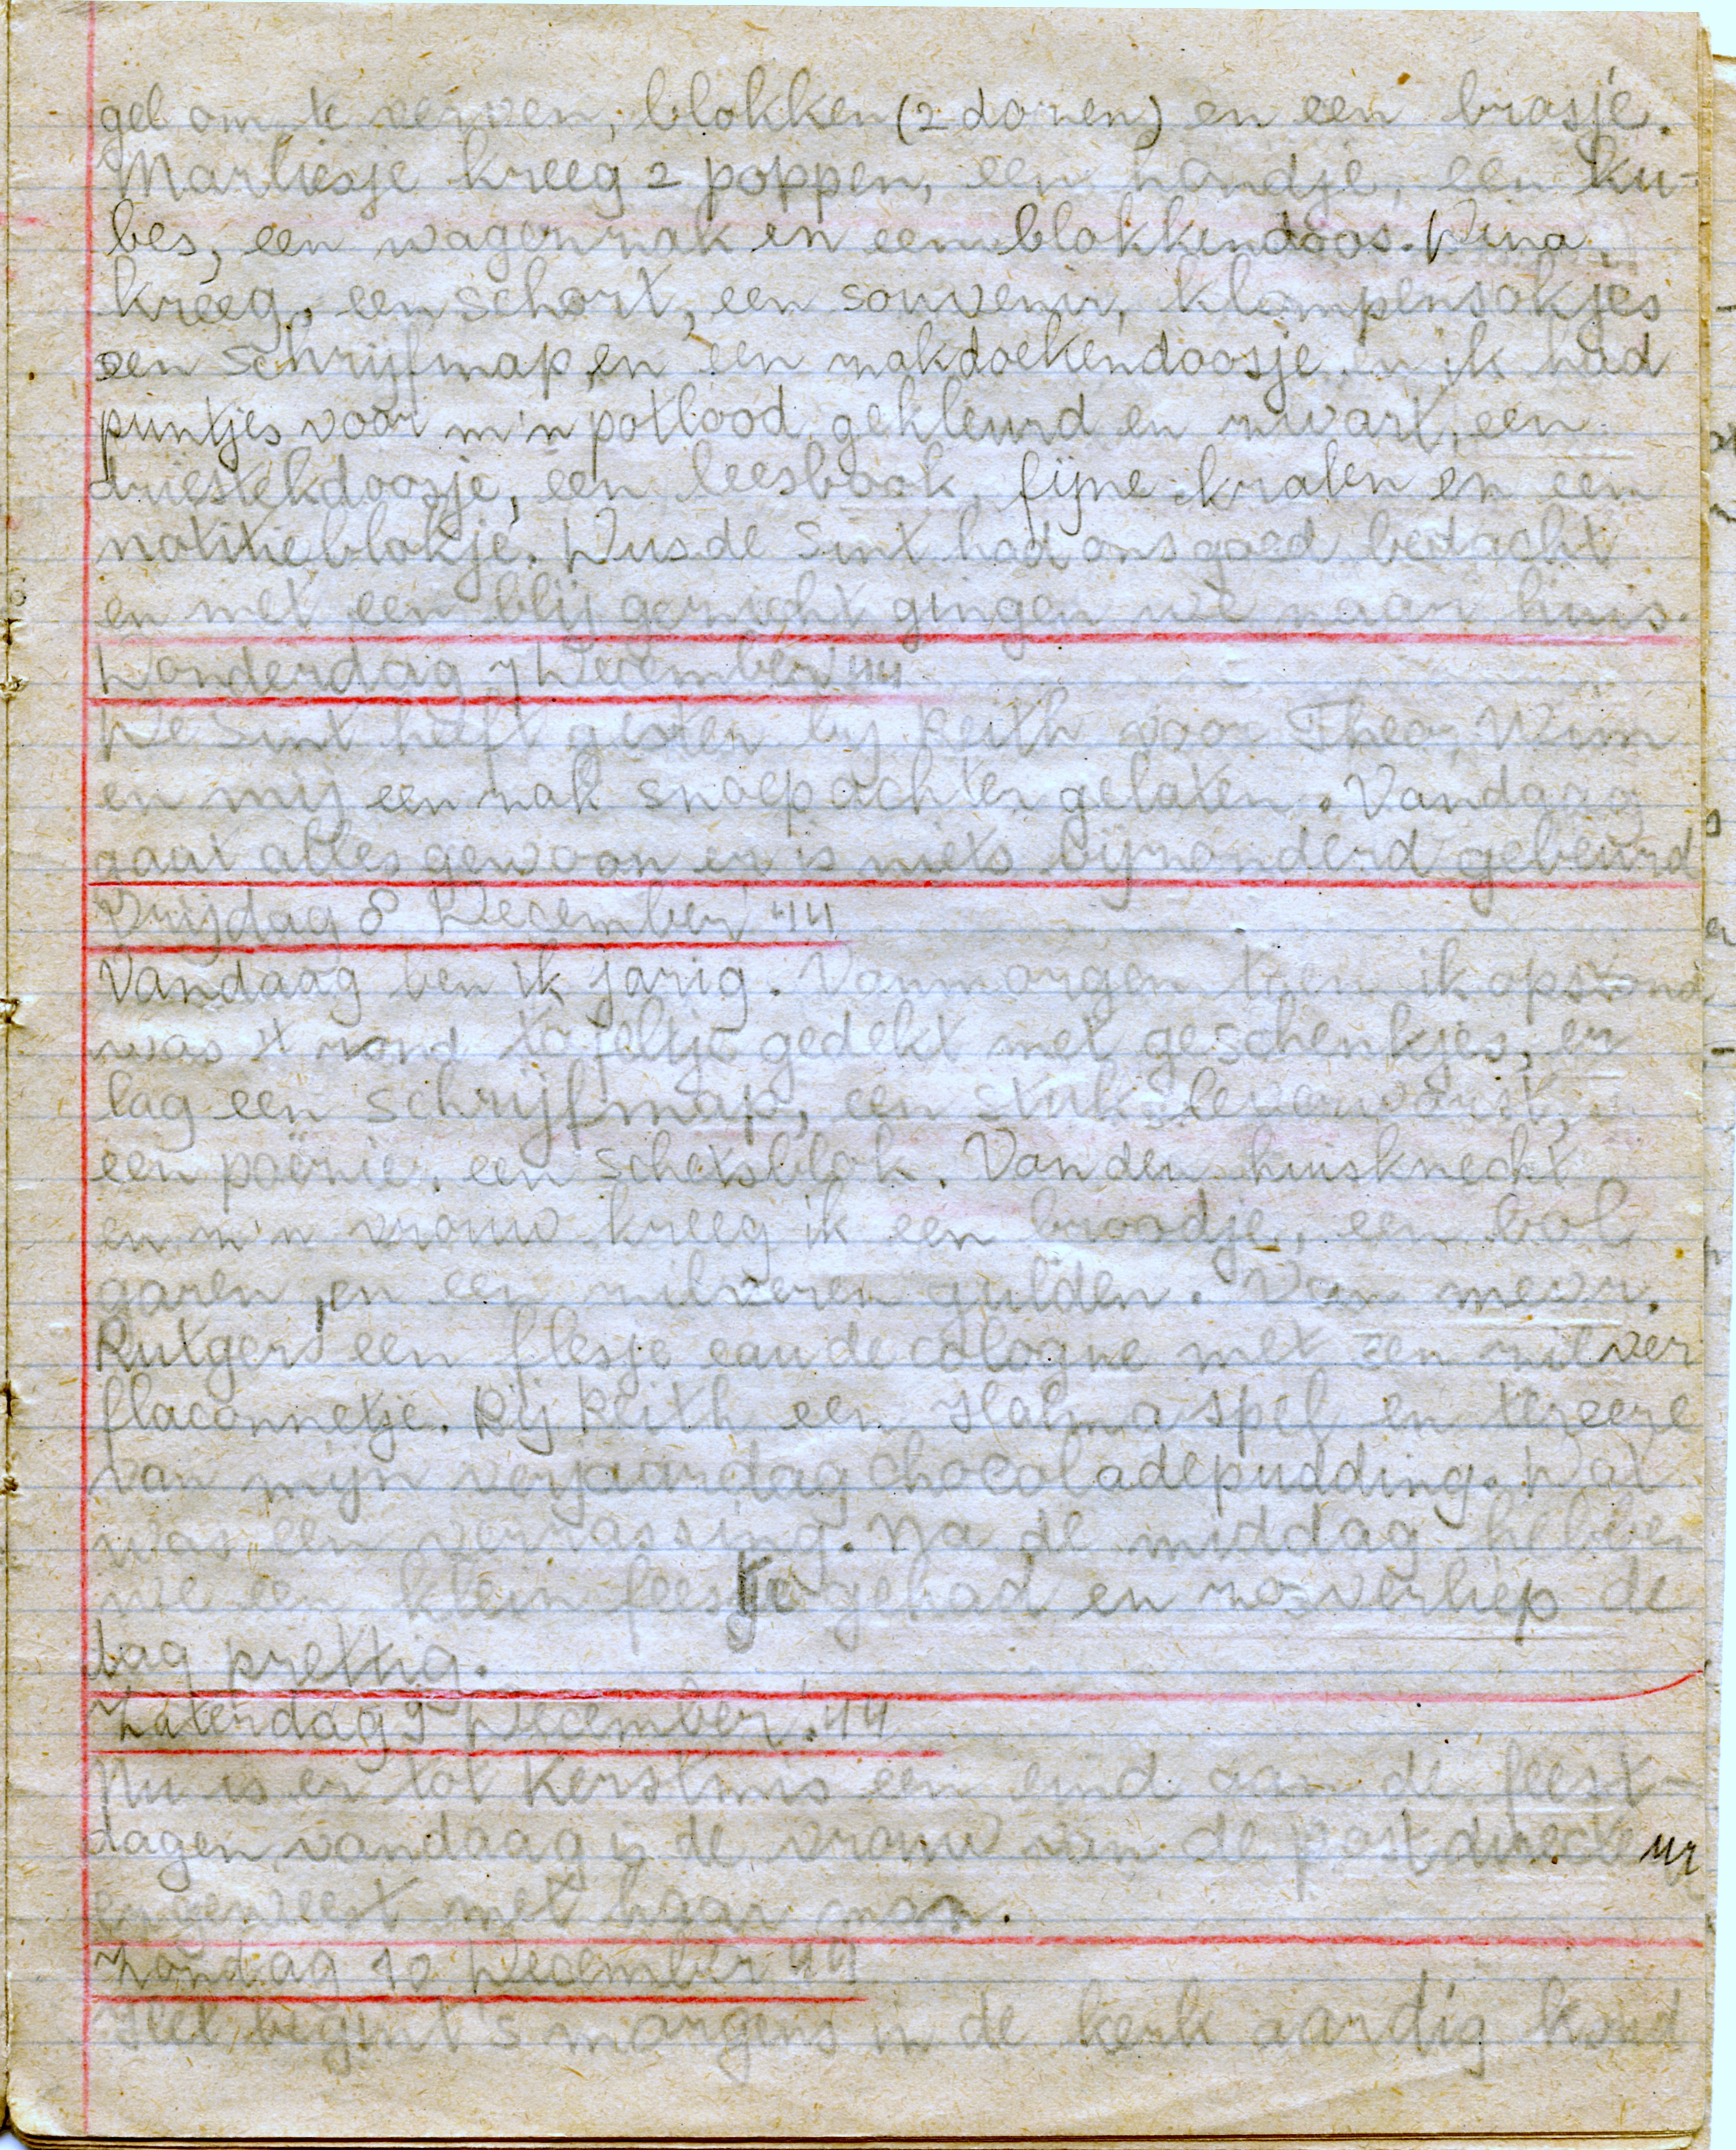 gel om te verven, blokken (2 dozen) en een brasjé.
Marliesje kreeg 2 poppen, een hondje, een ku-
bes, een wagenzak en een blokkendoos. Dina,
kreeg, een schort, een souvenir, klompensokjes
een schrijfmap, en een zakdoekendoosje en ik had
puntjes voor m'n potlood gekleurd en zwart, een
driestekdoosje, een leesboek, fijne kralen en een
notitieblokje. Dus de Sint had ons goed bedacht
en met een blij gezicht gingen we naar huis.
Donderdag 7 December '44
De Sint heeft gisteren bij Reith voor Theo, Wim
en mij een zak snoep achter gelaten. Vandaag
gaat alles gewoon er is niets bijzonderd gebeurd
Vrijdag 8 December '44
Vandaag ben ik jarig. Vanmorgen toen ik opstond,
was 't rond tafeltje gedekt met geschenkjes, er
lag een schrijfmap, een stuk leverworst,
een poëzie, een schetsblok. Van den huisknecht
en z'n vrouw kreeg ik een broodje, een bol
garen, en een zilveren gulden. Van mevr.
Rutgers een flesje eau de cologne met een zilver
flaconnetje. Bij Reith een Halma spel en ter eere
van mijn verjaardag chocoladepudding. Dat
was een verrassing. Na de middag hebben
we een klein feestje gehad en zo verliep de
dag prettig.
Zaterdag 9 December '44
Nu is er tot Kerstmis een eind aan de feest-
dagen vandaag is de vrouw van de postdirecteur
er geweest met haar man.
Zondag 10 December '44
Het begint 's morgens in de kerk aardig koud